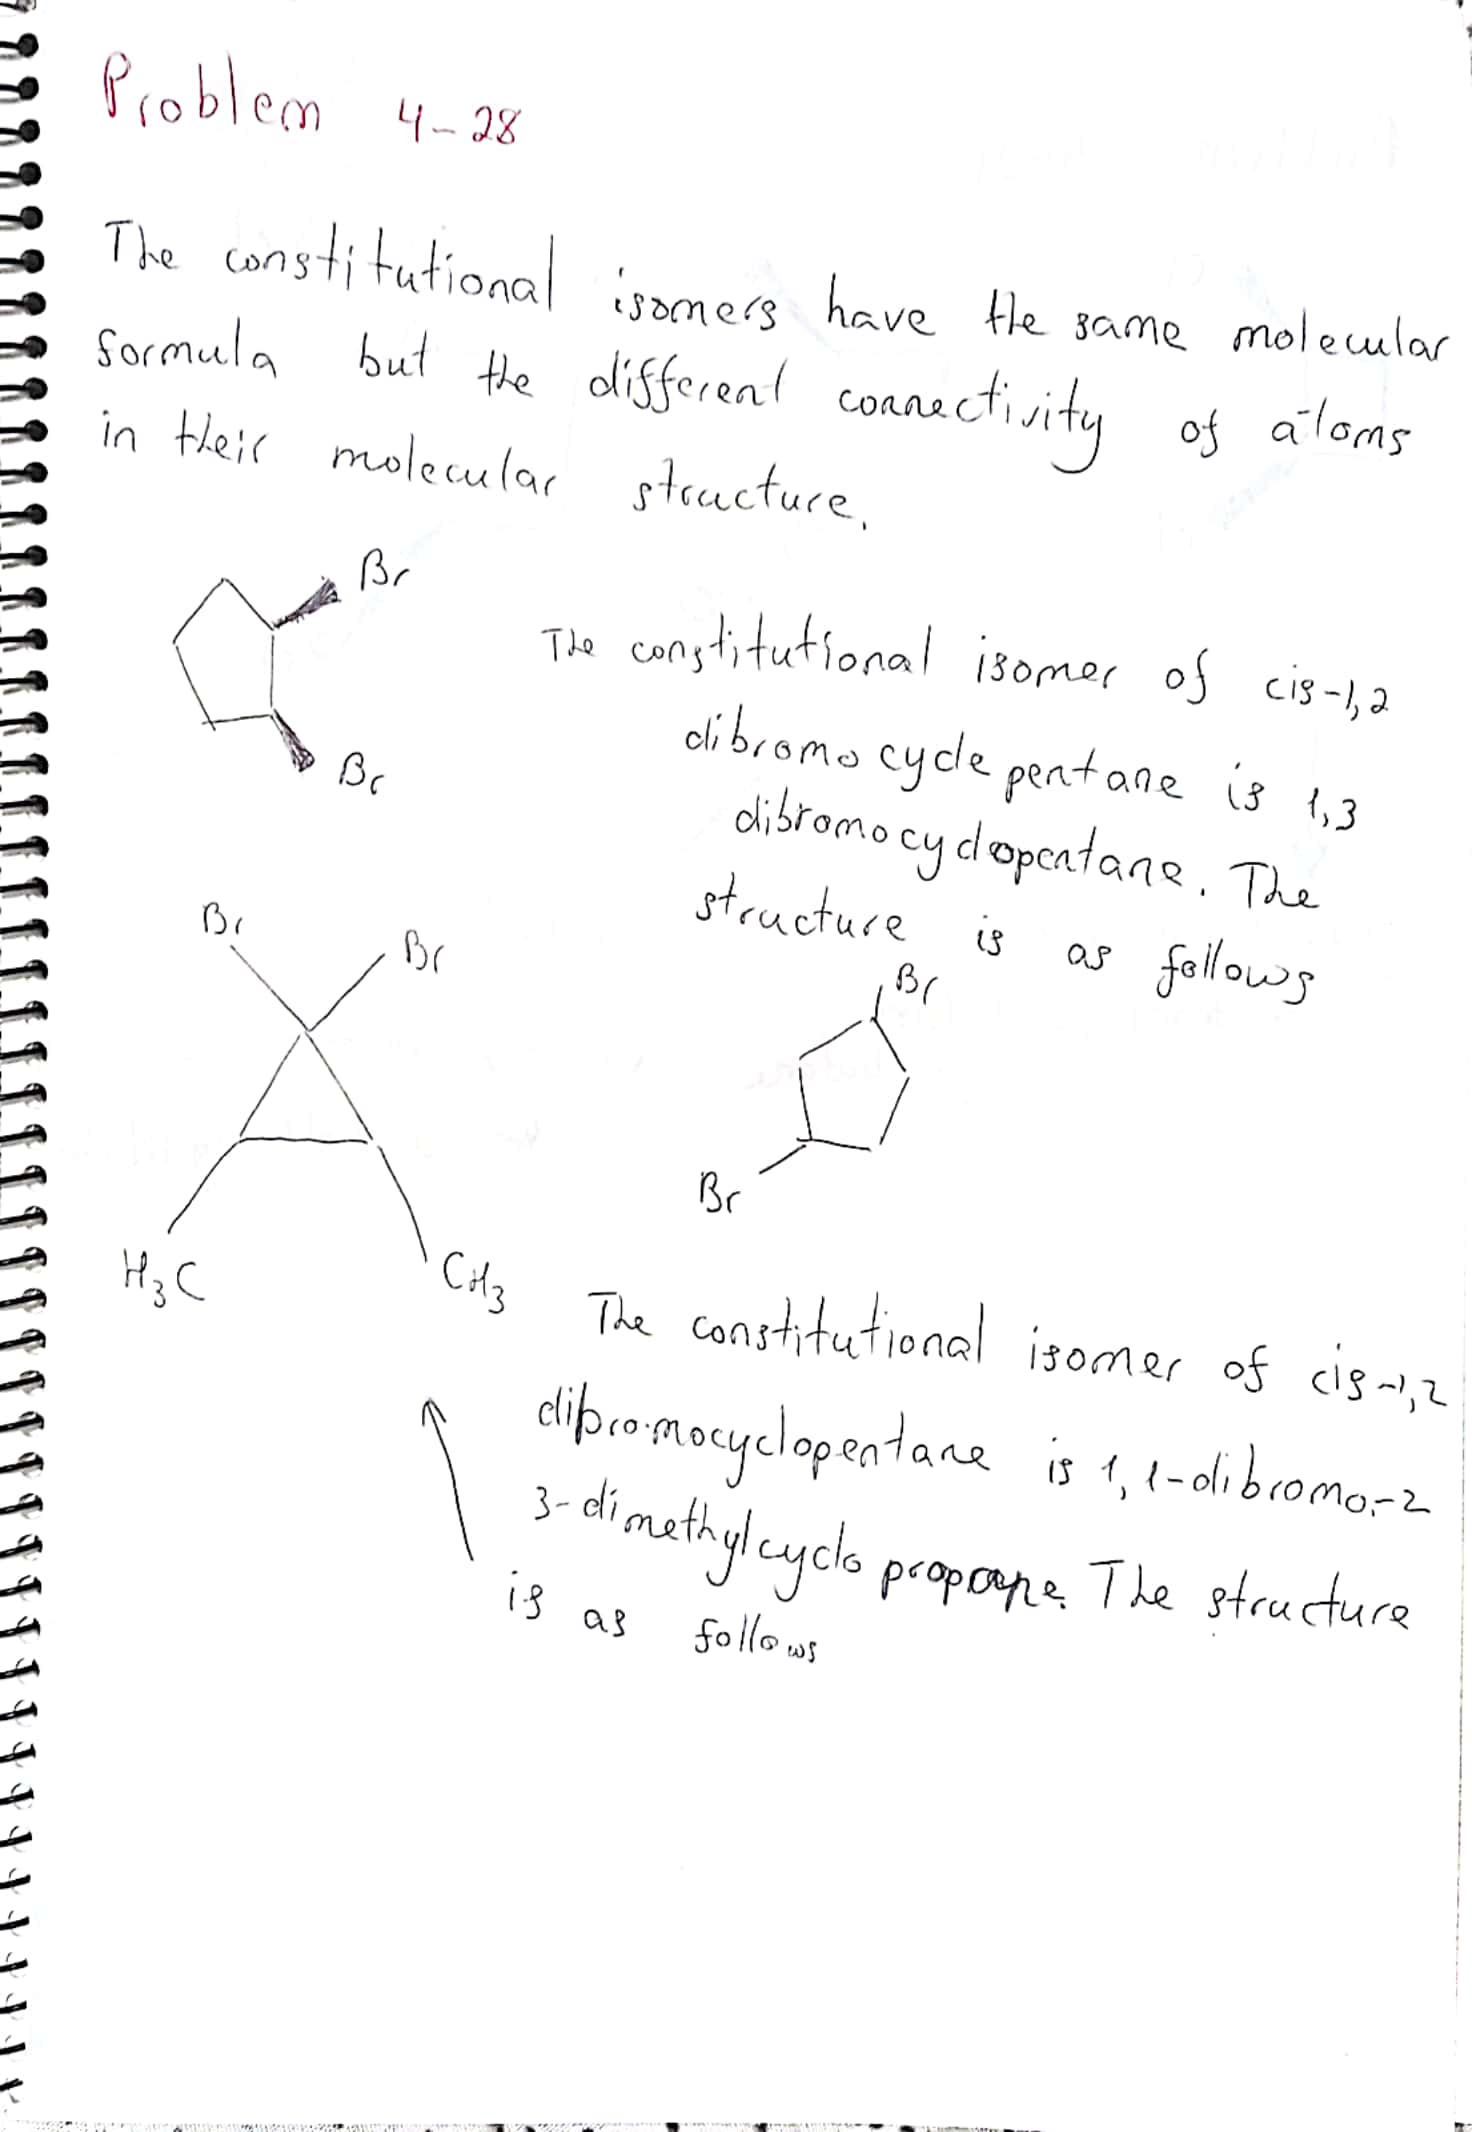 Problem 4-28
The constitutional isomers have the same molecular
formula but the different connectivity of atoms
in their molecular structure.
Br
Br
The constitutional isomer of cis-1,2
dibromo cyclo pentane is 1,3
dibromocyclopentane. The
structure is as follows
Br
Br
H3C
CH3
Br
Br
The constitutional isomer of cis-1,2
dibromocyclopentane is 1,1-dibromo-2
3-dimethylcyclo propane. The structure
is as follows